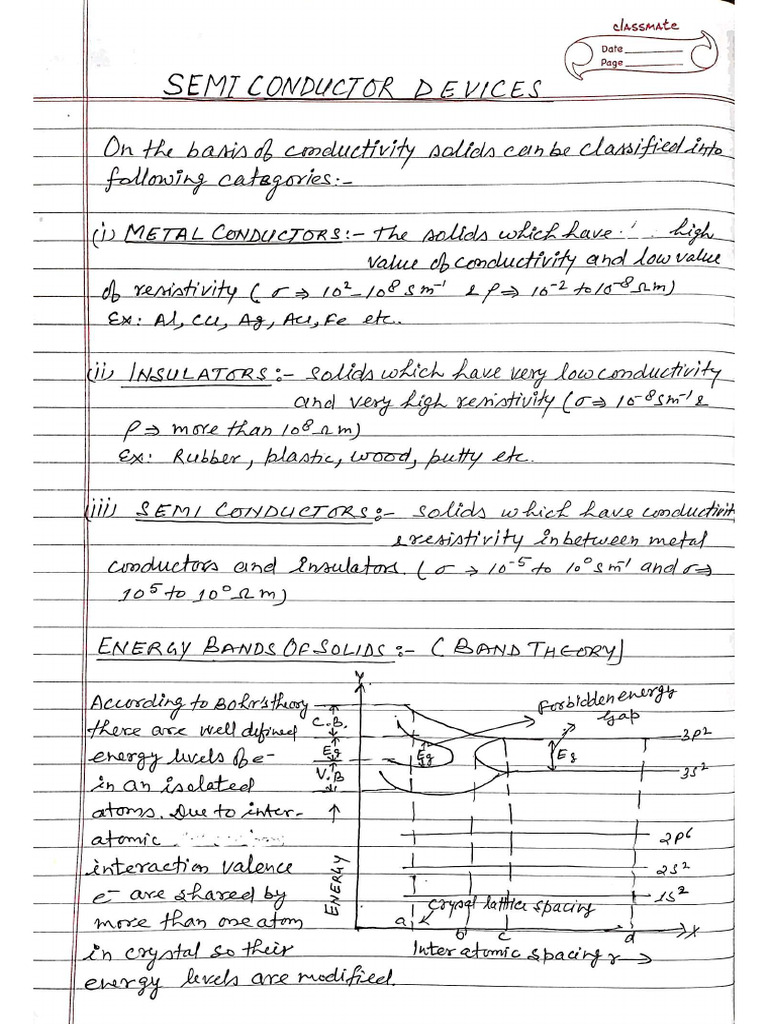 classmate
Date
Page
SEMI CONDUCTOR DEVICES
On the basis of conductivity solids can be classified into
following categories:-
(i) METAL CONDUCTORS:- The solids which have high
value of conductivity and low value
of resistivity (σ ⇒ 10²-10⁸ Sm⁻¹ & ρ ⇒ 10⁻² to 10⁻⁸ Ωm)
Ex: Al, Cu, Ag, Au, Fe etc.
(ii) INSULATORS:- Solids which have very low conductivity
and very high resistivity (σ ⇒ 10⁻⁸ Sm⁻¹ &
ρ ⇒ more than 10⁸ Ωm)
Ex: Rubber, plastic, wood, putty etc.
(iii) SEMI CONDUCTORS:- Solids which have conductivit
& resistivity inbetween metal
conductors and insulators. (σ → 10⁻⁵ to 10⁰ Sm⁻¹ and σ ⇒
10⁵ to 10⁰ Ωm)
ENERGY BANDS OF SOLIDS:- (BAND THEORY)
According to Bohr's theory
there are well defined
energy levels of e⁻
in an isolated
atoms. Due to inter-
atomic
interaction valence
e⁻ are shared by
more than one atom
in crystal so their
energy levels are modified.
Y
Forbidden energy
Gap
C.B.
Eg
V.B
Eg
Eg
3P²
3S²
2P⁶
2S²
1S²
ENERGY
Crysal lattice spacing
a
b
c
d
X
Inter atomic spacing r →